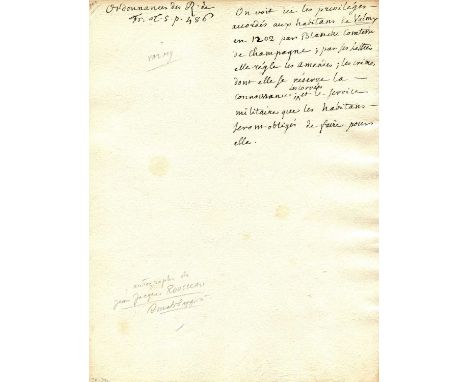 Ordonnances des R. de
Fr. t. 5. p. 486
On voit ici les privileges
accordés aux habitans de
en 1202 par Blanche Comtesse
de Champagne; par ses lettres
elle règle les amendes; les crimes,
dont elle se réserve la
connoissance, les corvées et le service
militaire que les habitans
seront obligés de faire pour
elle.
autographe de
Jean Jacques Rousseau